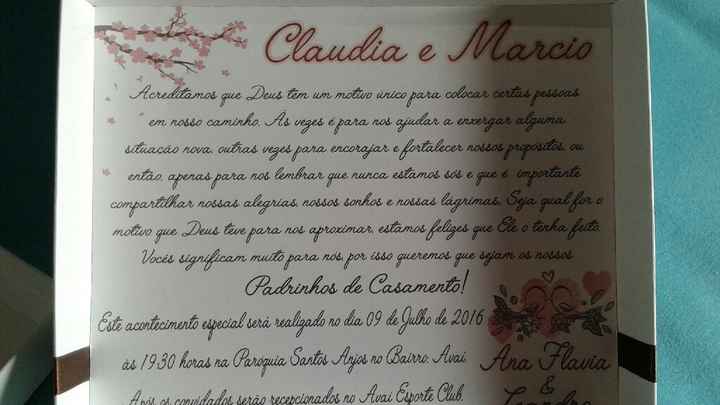 Claudia e Marcio
Acreditamos que Deus têm um motivo único para colocar certas pessoas
em nosso caminho. Às vezes é para nos ajudar a enxergar alguma
situação nova, outras vezes para encorajar e fortalecer nossos propósitos, ou
então, apenas para nos lembrar que nunca estamos sós e que é importante
compartilhar nossas alegrias, nossos sonhos e nossas lágrimas. Seja qual for o
motivo que Deus teve para nos aproximar, estamos felizes que Ele o tenha feito.
Vocês significam muito para nós, por isso queremos que sejam os nossos
Padrinhos de Casamento!
Este acontecimento especial será realizado no dia 09 de Julho de 2016
às 19:30 horas na Paróquia Santos Anjos no Bairro: Avaí.
Após os convidados serão recepcionados no Avaí Esporte Club.
Ana Flavia
&
Leandro